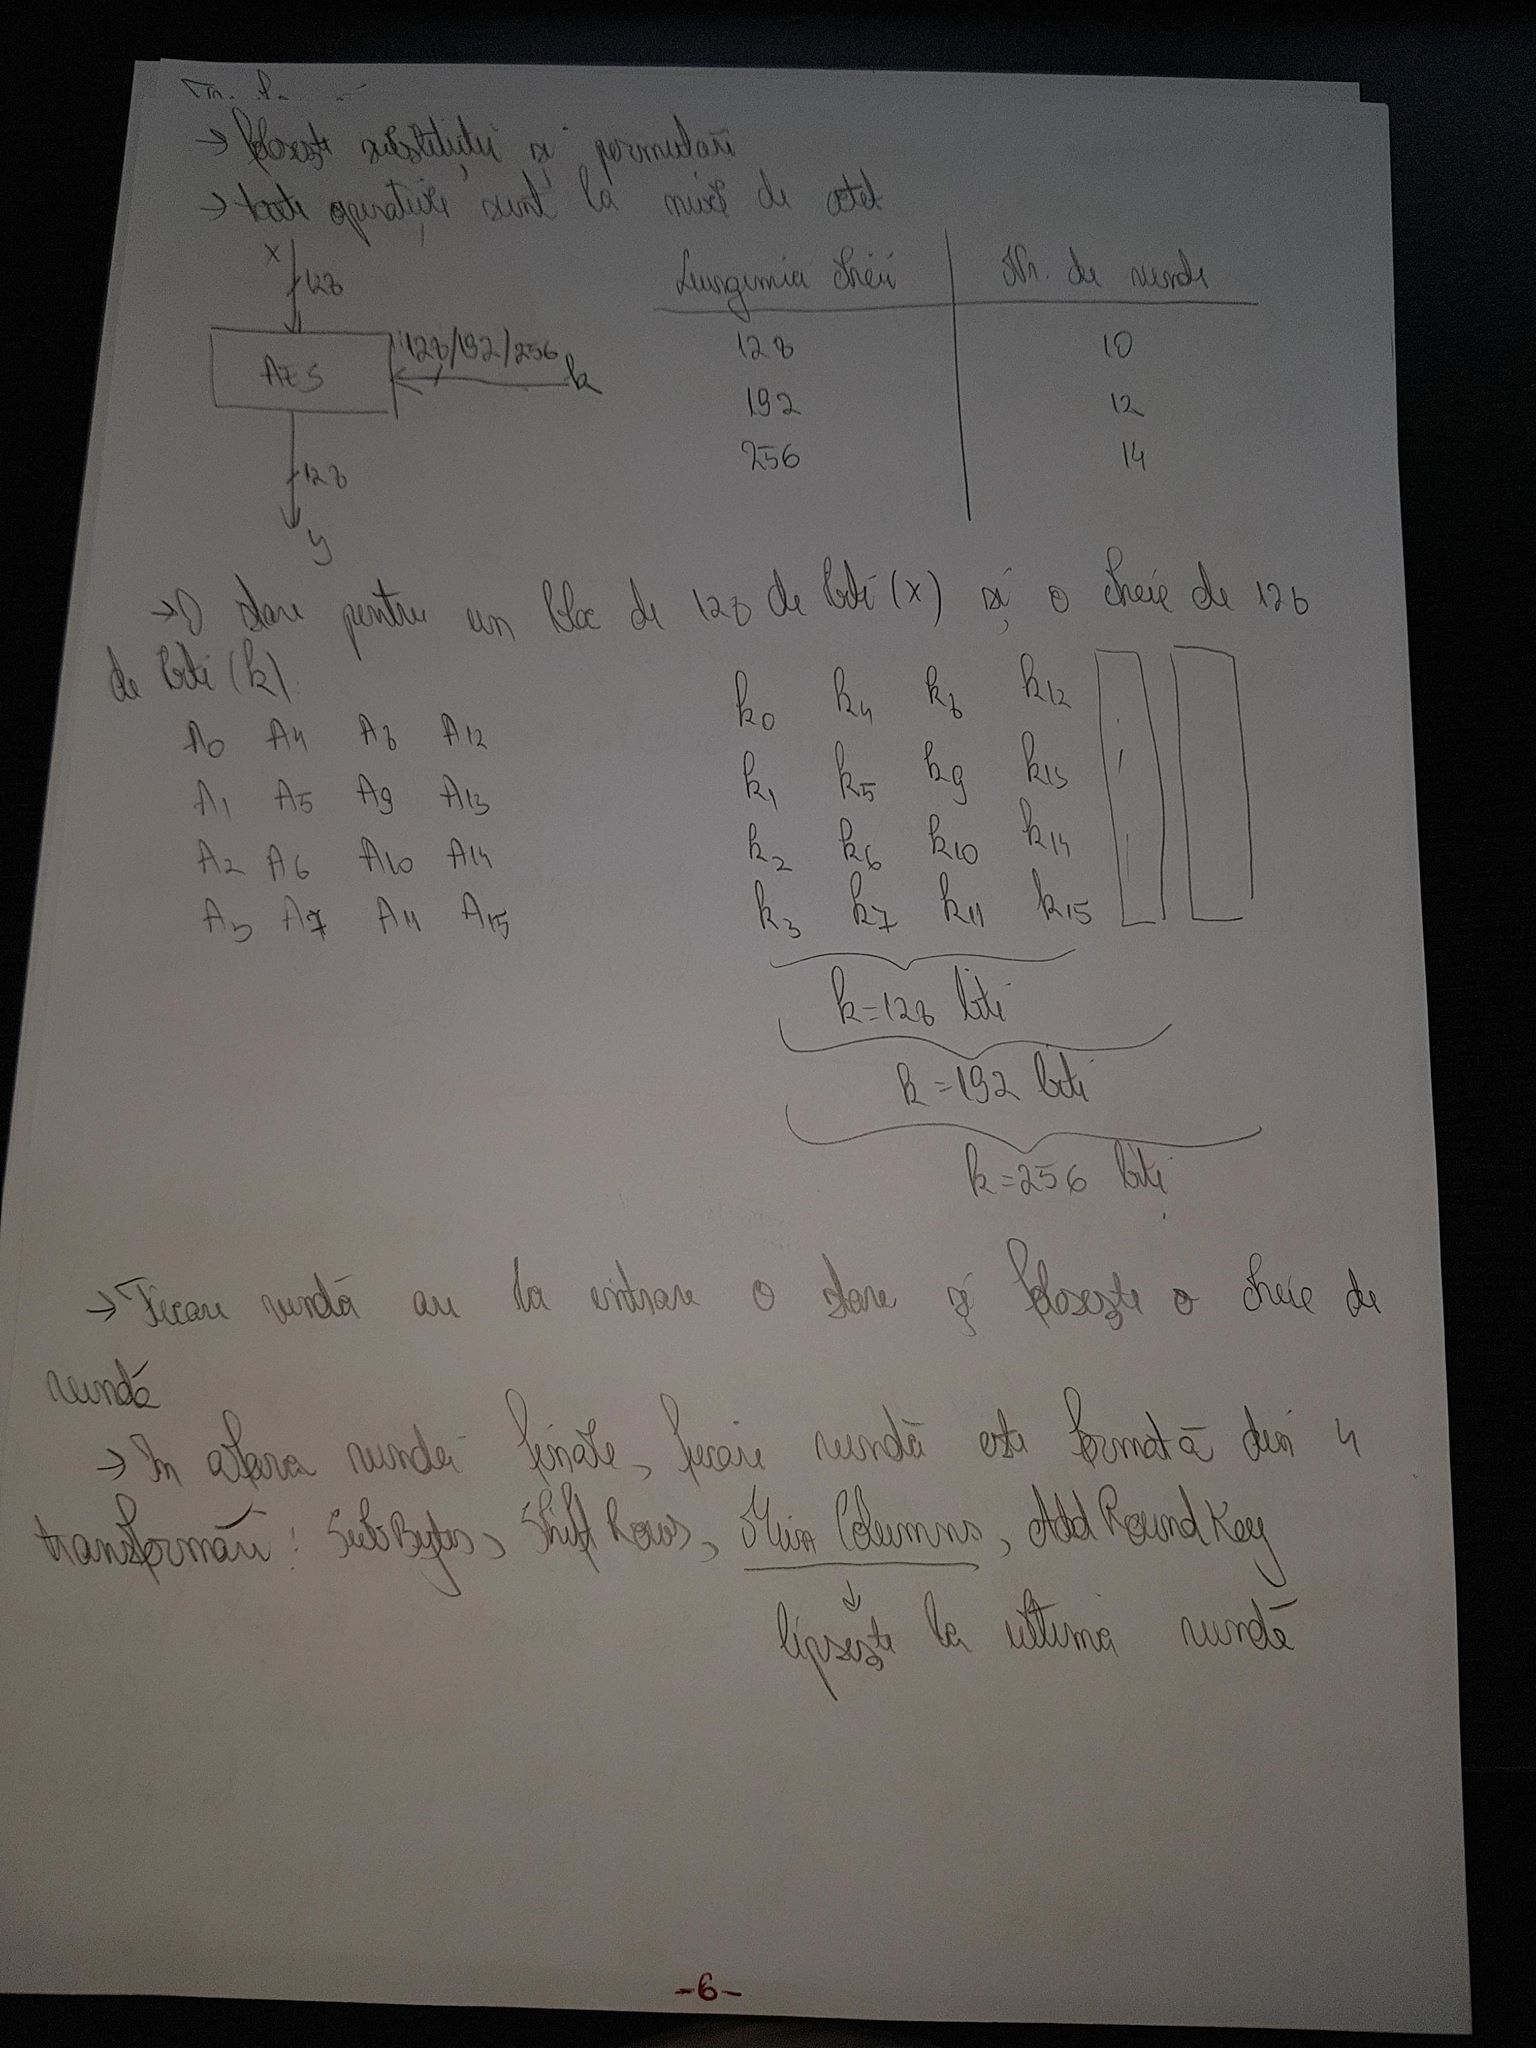 → folosește substituții și permutări
→ toate operațiile sunt la nivel de octet
x
128
AES
128/192/256
k
128
y
Lungimia cheii Nr. de runde
128 10
192 12
256 14
→ O stare pentru un bloc de 128 de biți (x) și o cheie de 128
de biți (k)
A0 A4 A8 A12
A1 A5 A9 A13
A2 A6 A10 A14
A3 A7 A11 A15
k0 k4 k8 k12
k1 k5 k9 k13
k2 k6 k10 k14
k3 k7 k11 k15
k=128 biți
k=192 biți
k=256 biți
→ Fiecare rundă are la intrare o stare și folosește o cheie de
rundă
→ În afara rundei finale, fiecare rundă este formată din 4
transformări: SubBytes, Shift Rows, Mix Columns, Add Round Key
↓
lipsește la ultima rundă
-6-